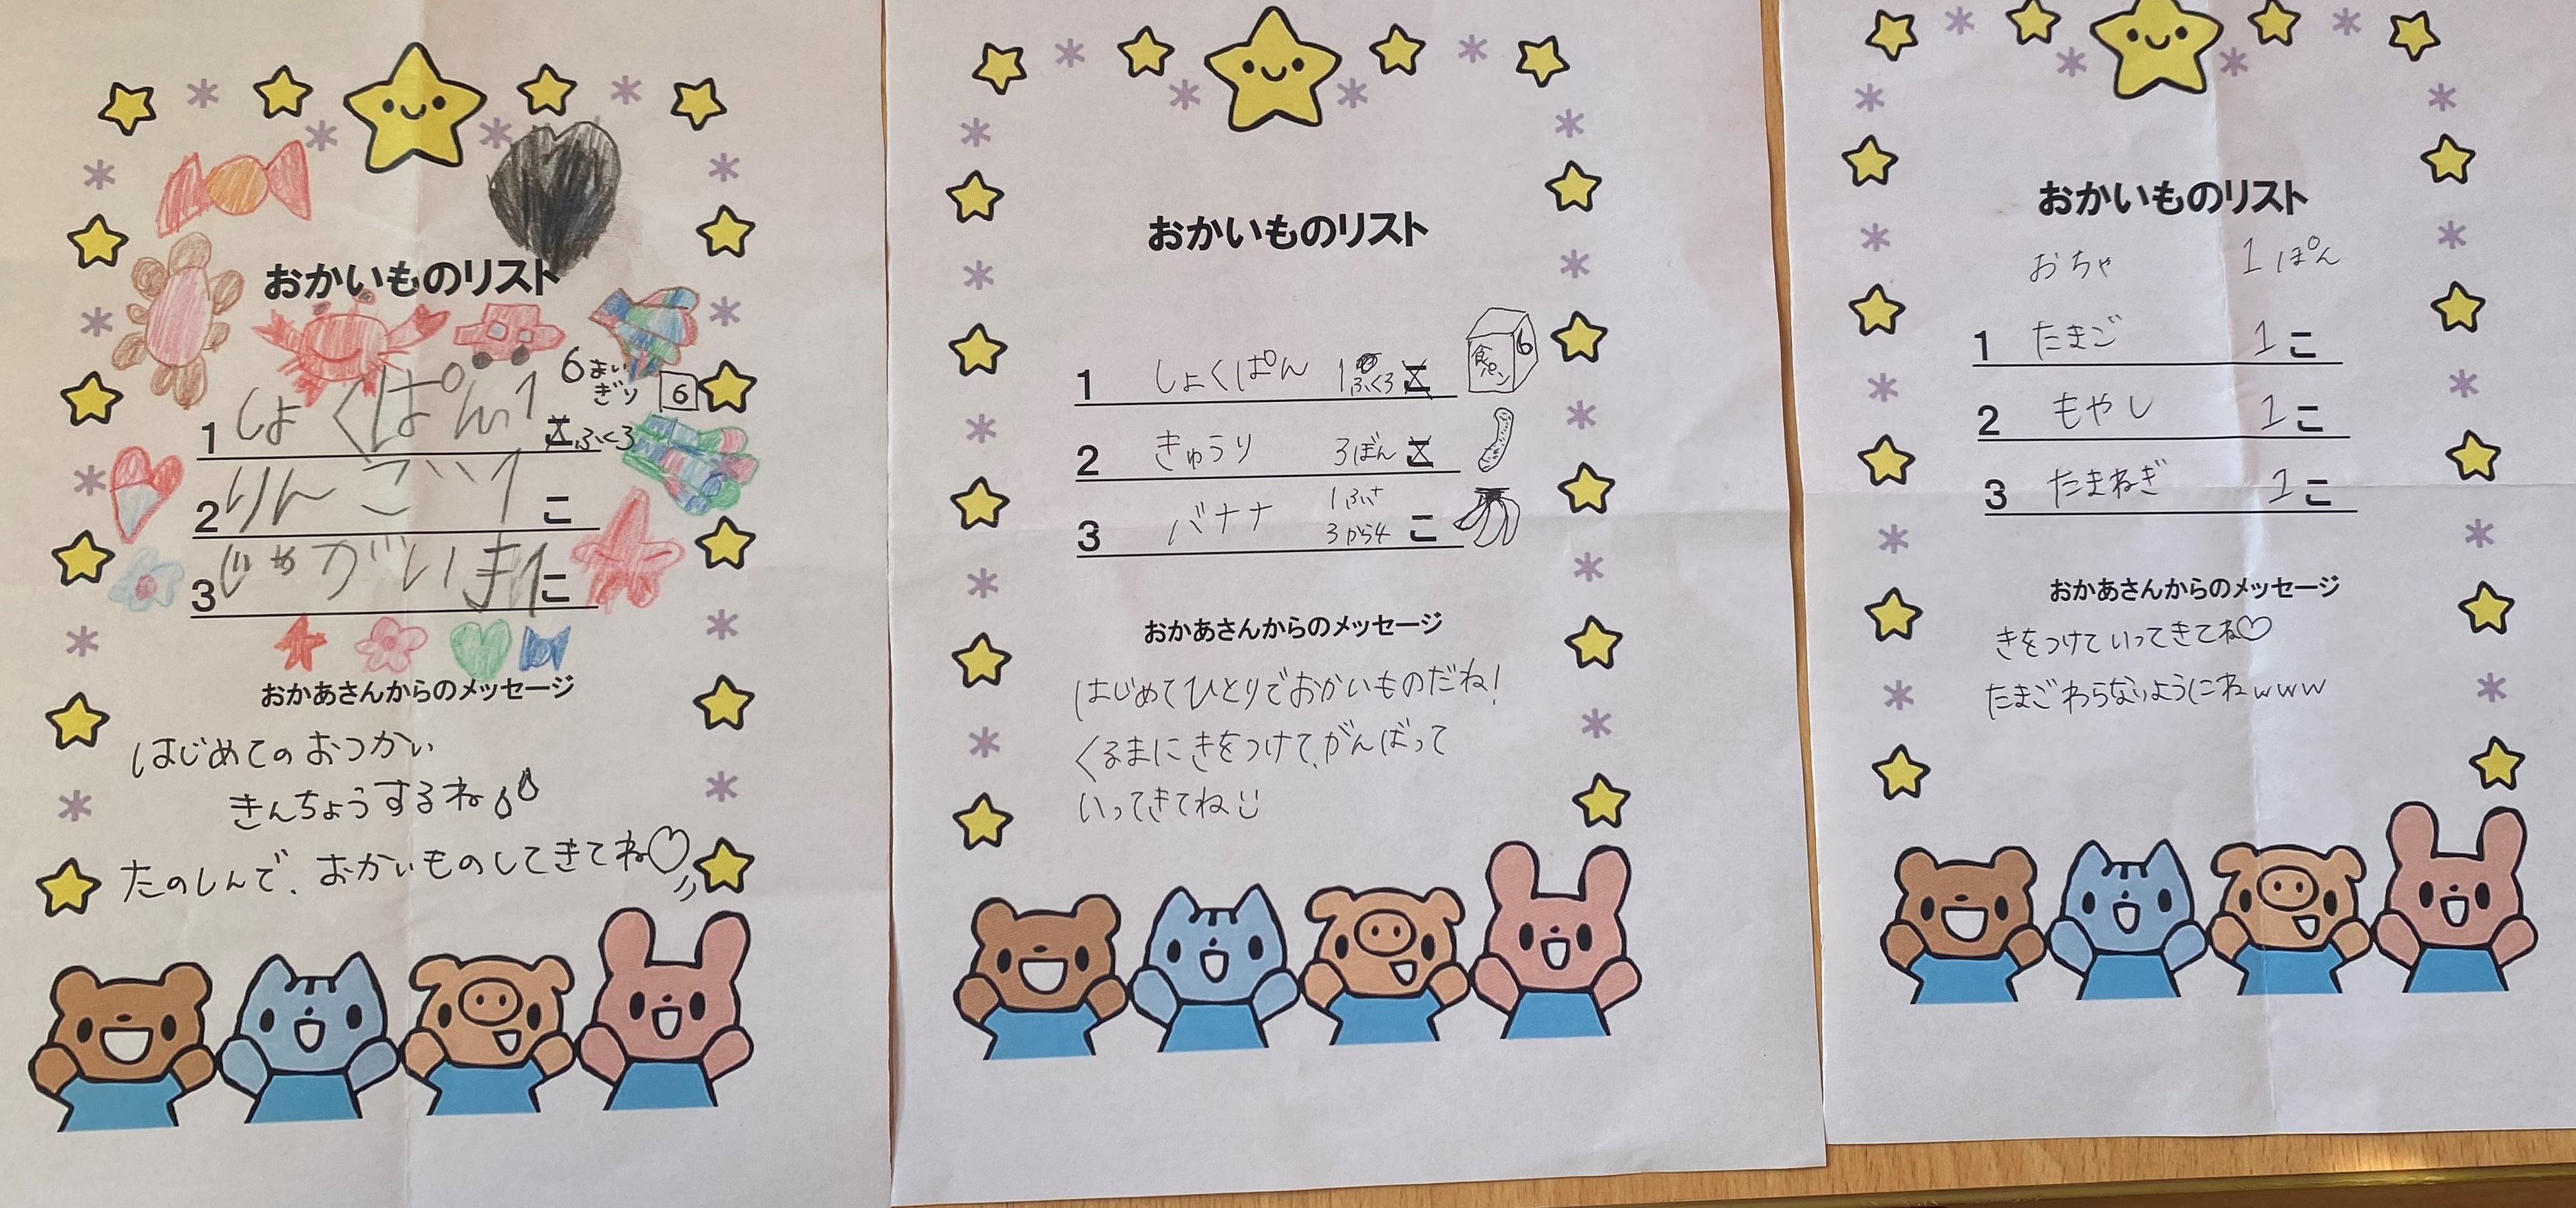 おかいものリスト
6まい
ぎり 6
1 しょくぱん 1 こ ふくろ
2 りんご 1 こ
3 じゃがいも 1 こ
おかあさんからのメッセージ
はじめてのおつかい
きんちょうするね
たのしんで、おかいものしてきてね♡
おかいものリスト
1 しょくぱん 1 ふくろ こ
食パン 6
2 きゅうり 3ぼん こ
3 バナナ 1ふさ 3から4 こ
おかあさんからのメッセージ
はじめてひとりでおかいものだね!
くるまにきをつけて、がんばって
いってきてね
おかいものリスト
おちゃ 1ぽん
1 たまご 1 こ
2 もやし 1 こ
3 たまねぎ 1 こ
おかあさんからのメッセージ
きをつけていってきてね♡
たまごわらないようにねwww